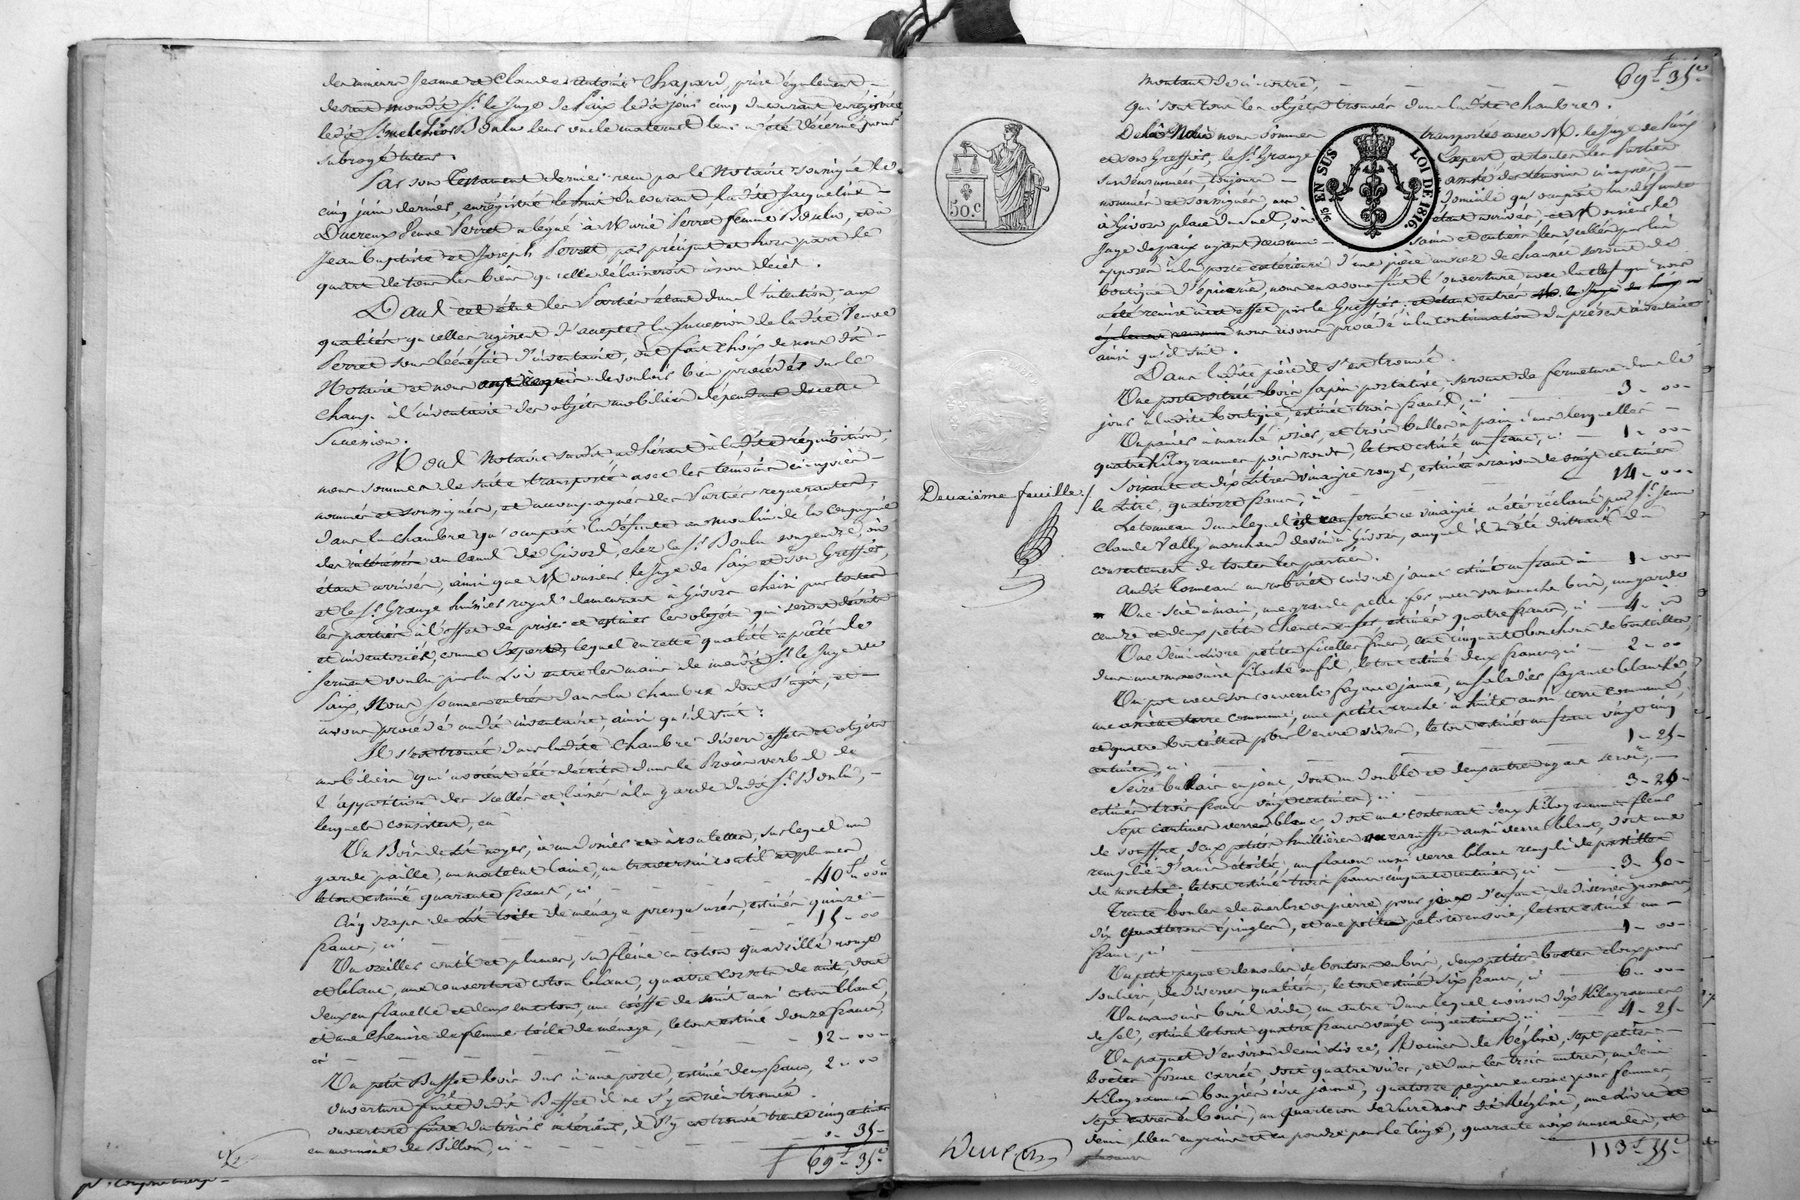 des mineurs Jeanne et Claude Antoine Chapard, prise également
devant mondit Sr. le Juge de Paix ledit jour cinq du courant enregistré
ledit Sr. Melchior Boulu leur oncle maternel leur a été décerné pour
subrogé tuteur.
Par son Testament dernier reçu par le Notaire soussigné le
cinq juin dernier, enregistré le huit du courant, ladite Jacqueline
Ducreux Veuve Perret a légué à Marie Perret femme Boulu, et à
Jean Baptiste et Joseph Perret par préciput et hors part le
quart de tous les biens qu'elle délaisserait à son décès.
Dans cet état les Parties étant dans l'intention, aux
qualités qu'elles agissent d'accepter la succession de ladite Veuve
Perret sous bénéfice d'inventaire, ont fait choix de nous dit
Notaire et nous ont requis de vouloir bien procéder sur le
champ à l'inventaire des objets mobiliers dépendants de cette
Succession.
Nous Notaire susdit adhérant à ladite réquisition,
nous sommes de suite transporté avec les témoins ci-après
nommés et soussignés, et accompagnés des Parties requérantes,
dans la chambre qu'occupait la défunte au moulin de la Compagnie
des intéressés au canal de Givors, chez le Sr. Boulu son gendre, où
étant arrivés, ainsi que Monsieur le Juge de Paix et son Greffier,
et le Sr. Grange huissier royal demeurant à Givors choisi par toutes
les parties à l'effet de priser et estimer les objets qui seront décrits
et inventoriés, comme Expert, lequel en cette qualité a prêté le
serment voulu par la Loi entre les mains de mondit Sr. le Juge de
Paix, Nous sommes entrés dans la chambre dont s'agit, et
avons procédé audit inventaire, ainsi qu'il suit:
Il s'est trouvé dans ladite chambre divers effets et objets
mobiliers qui avaient été décrits dans le Procès verbal de
l'apposition des scellés et laissés à la garde dudit Sr. Boulu,
lesquels consistent, en
Un Bois de lit noyer, à un dossier et à roulettes, sur lequel un
garde paille, un matelat laine, un traversin coutil et plumes
le tout estimé quarante francs, ci 40f 00c
Cinq draps de lit toile de ménage presqu'usés, estimés quinze
francs, ci 15 - 00
Un oreiller coutil et plumes, sa fleine en coton quadrillé rouge
et blanc, une couverture coton blanc, quatre corsets de nuit, dont
deux en flanelle et deux en coton, une coëffe de nuit aussi coton blanc,
et une chemise de femme toile de ménage, le tout estimé douze francs,
ci 12 - 00
Un petit Buffet bois dur à une porte, estimé deux francs, 2 - 00
ouverture faite dudit Buffet il ne s'y est rien trouvé.
ouverture faite du tiroir intérieur, il s'y est trouvé trente cinq centimes
en monnaie de Billon, ci 0 - 35
f 69f 35c
montant de ci-contre, 69f 35c
Qui sont tous les objets trouvés dans ladite chambre.
De là Nous nous sommes transportés avec M. le Juge de Paix
et son Greffier, le Sr. Grange Expert, et toutes les Parties
susdénommées, toujours assisté des témoins ci-après
nommés et soussignés, au domicile qu'occupait la défunte
à Givors place du Suel, où étant arrivés, et Monsieur le
Juge de paix ayant reconnu sains et entiers les scellés par lui
apposés à la porte extérieure d'une pièce au rez de chaussée servant de
boutique d'épicerie, nous en avons fait l'ouverture avec la clef qui nous
a été remise à cet effet par le Greffier, et étant entrés
nous avons procédé à la continuation du présent inventaire
ainsi qu'il suit.
Dans ladite pièce il s'est trouvé.
Une porte vitrée bois sapin portative servant de fermeture dans le
jour à ladite boutique, estimée trois francs, ci 3 - 00
Un panier à marché osier, et trois balles à pain dans lesquelles
quatre kilogrammes pois ronds, le tout estimé un franc, ci 1 - 00
Soixante et dix Litres vinaigre rouge, estimés à raison de vingt centimes
le Litre, quatorze francs, ci 14 - 00
Le tonneau dans lequel est renfermé ce vinaigre a été réclamé par Sr. Jean
Claude Vally marchand de vin à Givors, auquel il a été distrait du
consentement de toutes les parties.
Audit tonneau un robinet cuivre jaune estimé un franc ci 1 - 00
Une scie à main, une grande pelle fer avec son manche bois, un garde
cendre et deux petits chenets en fer estimés quatre francs, ci 4 - 00
Une demi-livre petites ficelles fines, cent cinquante bouchons de bouteilles,
dans une mauvaise filoche en fil, le tout estimé deux francs, ci 2 - 00
Un pot avec son couvercle fayance jaune, un saladier fayance blanche
une assiette terre commune, une petite cruche à huile aussi terre commune,
et quatre bouteilles pour l'encre vides, le tout estimé un franc vingt cinq
centimes, ci 1 - 25
Seize balais en jonc, dont un double et deux autres ayant servi,
estimés trois francs vingt centimes, ci 3 - 20
Sept cantines verre blanc, dont une contenant deux Kilogrammes fleur
de souffre, deux petites huilières ou caraffes aussi verre blanc, dont une
remplie d'anis étoilé, un flacon aussi verre blanc rempli de pastilles
de menthe, le tout estimé trois francs cinquante centimes, ci 3 - 50
Trente boules de marbre ou pierre pour jeux d'enfant de diverses grosseurs,
dix quarterons épingles, et une petite pelote en soie, le tout estimé un
franc, ci 1 - 00
Un petit paquet de moules de boutons en bois, deux petites boëtes cloux pour
souliers, de diverses qualités, le tout estimé six francs, ci 6 - 00
Un mauvais baril vide, un autre dans lequel environ dix Kilogrammes
de sel, estimé le tout quatre francs vingt cinq centimes 4 - 25
Un paquet d'environ demi Livre, Racines de Réglisse, sept petites
boëtes forme carrée, dont quatre vides, et dans les trois autres, un demi
Kilogramme bougies cire jaune, quatorze peignes en corne pour femmes
sept autres en bois, un quarteron de jus noir dit Réglisse, une livre et
demie bleu en grains et en poudre pour le linge, quarante noix muscades, et
113f 55c
50.c
5/6 EN SUS
LOI DE 1816
Deuxième feuille./